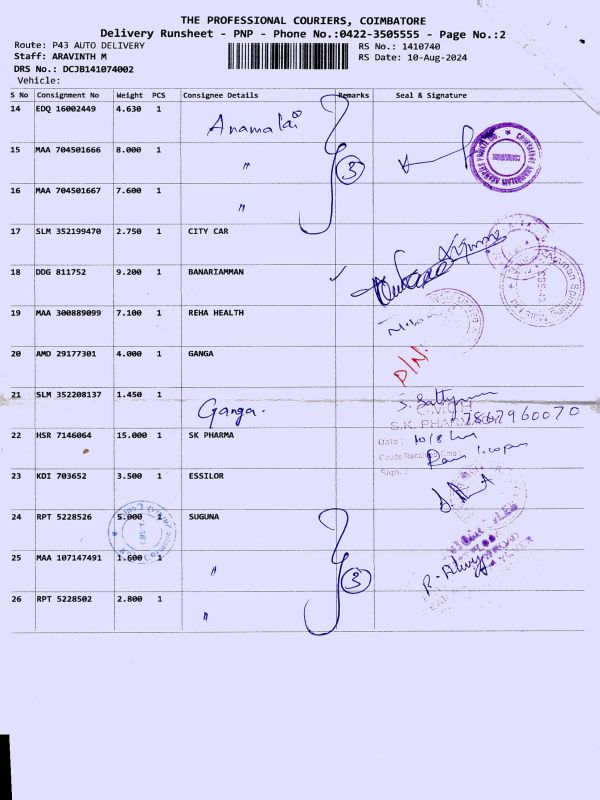 THE PROFESSIONAL COURIERS, COIMBATORE
Delivery Runsheet - PNP - Phone No.:0422-3505555 - Page No.:2
Route: P43 AUTO DELIVERY
RS No.: 1410740
Staff: ARAVINTH M
RS Date: 10-Aug-2024
DRS No.: DCJB141074002
Vehicle:
S No Consignment No Weight PCS Consignee Details Remarks Seal & Signature
14 EDQ 16002449 4.630 1 Anamalai
15 MAA 704501666 8.000 1 〃 3
16 MAA 704501667 7.600 1 〃
17 SLM 352199470 2.750 1 CITY CAR
18 DDG 811752 9.200 1 BANARIAMMAN ✓
19 MAA 300889099 7.100 1 REHA HEALTH
20 AMD 29177301 4.000 1 GANGA
21 SLM 352208137 1.450 1 Ganga. 7867960070
S.K. PHARMA
22 HSR 7146064 15.000 1 SK PHARMA Date: 10/8
Sign.:
23 KDI 703652 3.500 1 ESSILOR
24 RPT 5228526 5.000 1 SUGUNA
25 MAA 107147491 1.600 1 〃 3
26 RPT 5228502 2.800 1 〃